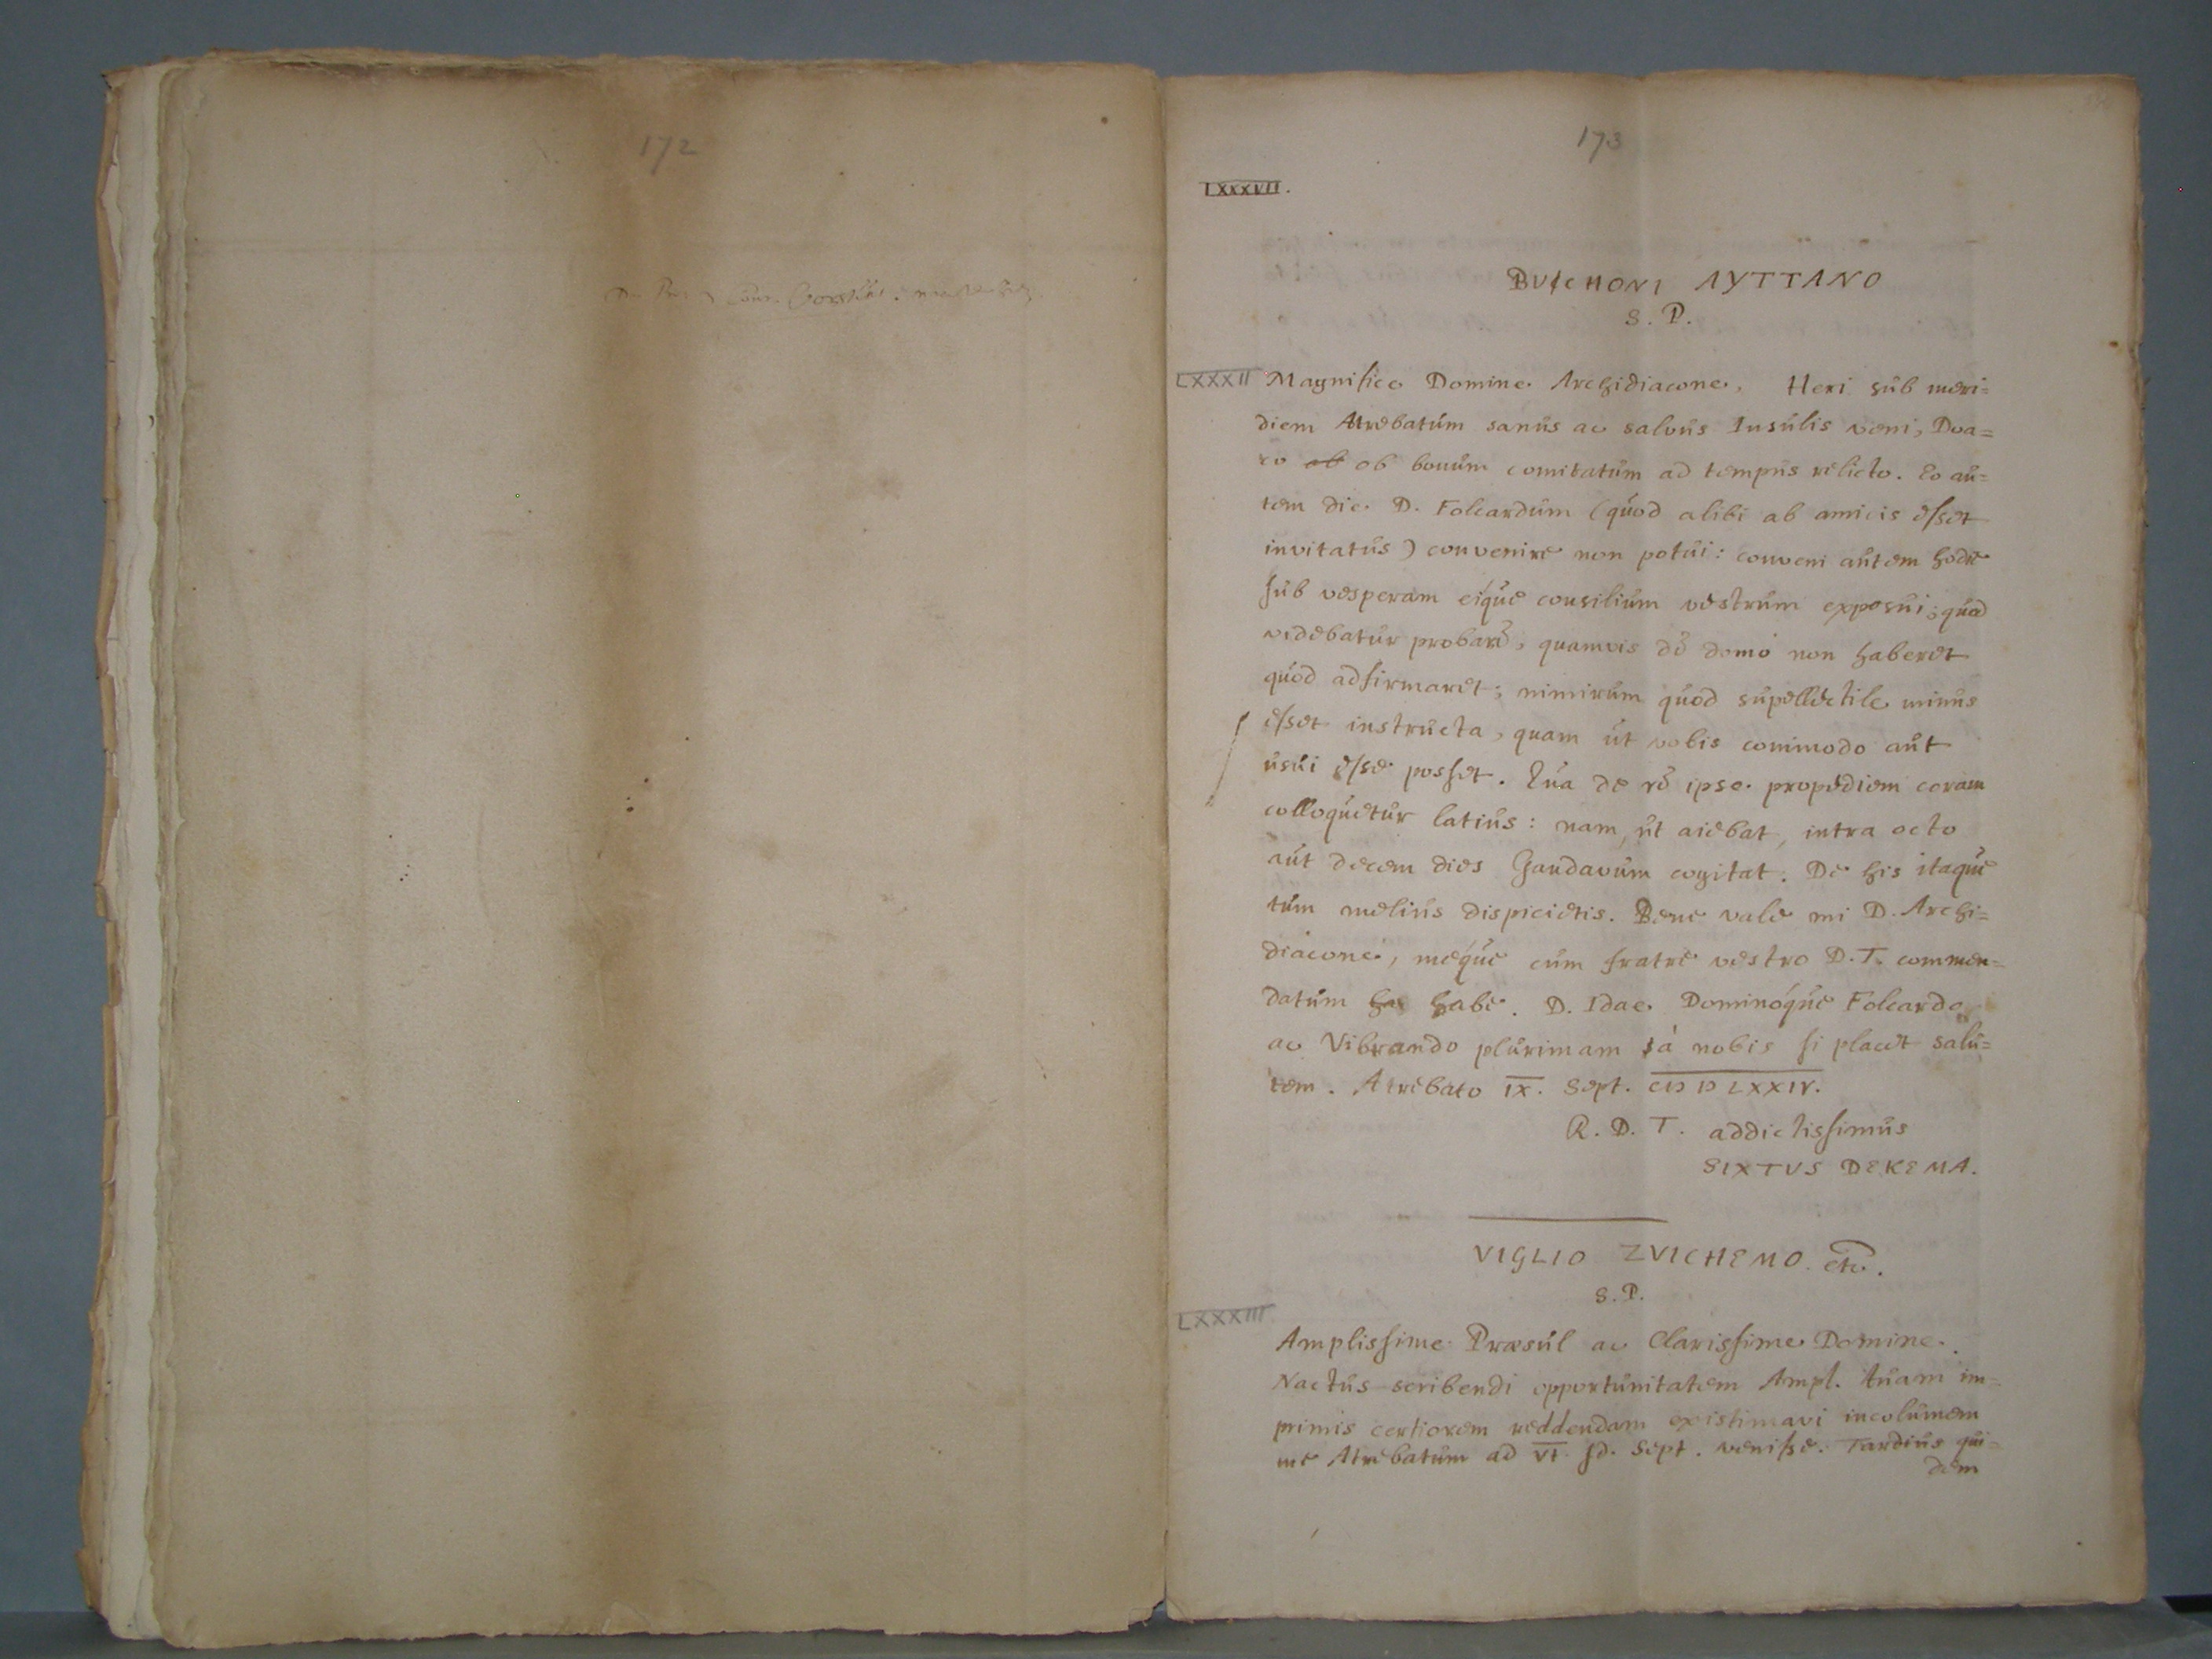 172
173
LXXXVII.
BVICHONI AYTTANO
S. P.
LXXXII Magnifice Domine Archidiacone, Heri sub meri=
diem Atrebatum sanus ac salvus Insulis veni, Dua=
co ob ob bonum comitatum ad tempus relicto. Eo au=
tem die D. Folcardum (quod alibi ab amicis esset
invitatus) convenire non potui: conveni autem hodie
sub vesperam eique consilium vestrum exposui; quod
videbatur probare, quamvis de domo non haberet
quod adfirmaret; nimirum quod supellectile minus
esset instructa, quam ut vobis commodo aut
usui esse posset. Qua de re ipse propediem coram
colloquetur latius: nam, ut aiebat, intra octo
aut decem dies Gandavum cogitat. De his itaque
tum melius dispicietis. Bene vale mi D. Archi=
diacone, meque cum fratre vestro D. T. commen=
datum ha habe. D. Idae Dominoque Folcardo
ac Vibrando plurimam à nobis si placet salu=
tem. Atrebato IX. Sept. CIↃ IↃ LXXIV.
R. D. T. addictissimus
SIXTVS DEKEMA.
VIGLIO ZVICHEMO etc.
S. P.
LXXXIII
Amplissime Præsul ac Clarissime Domine.
Nactus scribendi opportunitatem Ampl. tuam im=
primis certiorem reddendam existimavi incolumem
me Atrebatum ad VI. Id. Sept. venisse. Tardius qui=
dem